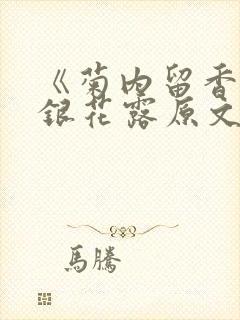 《菊内留香
銀花露原文
馬騰